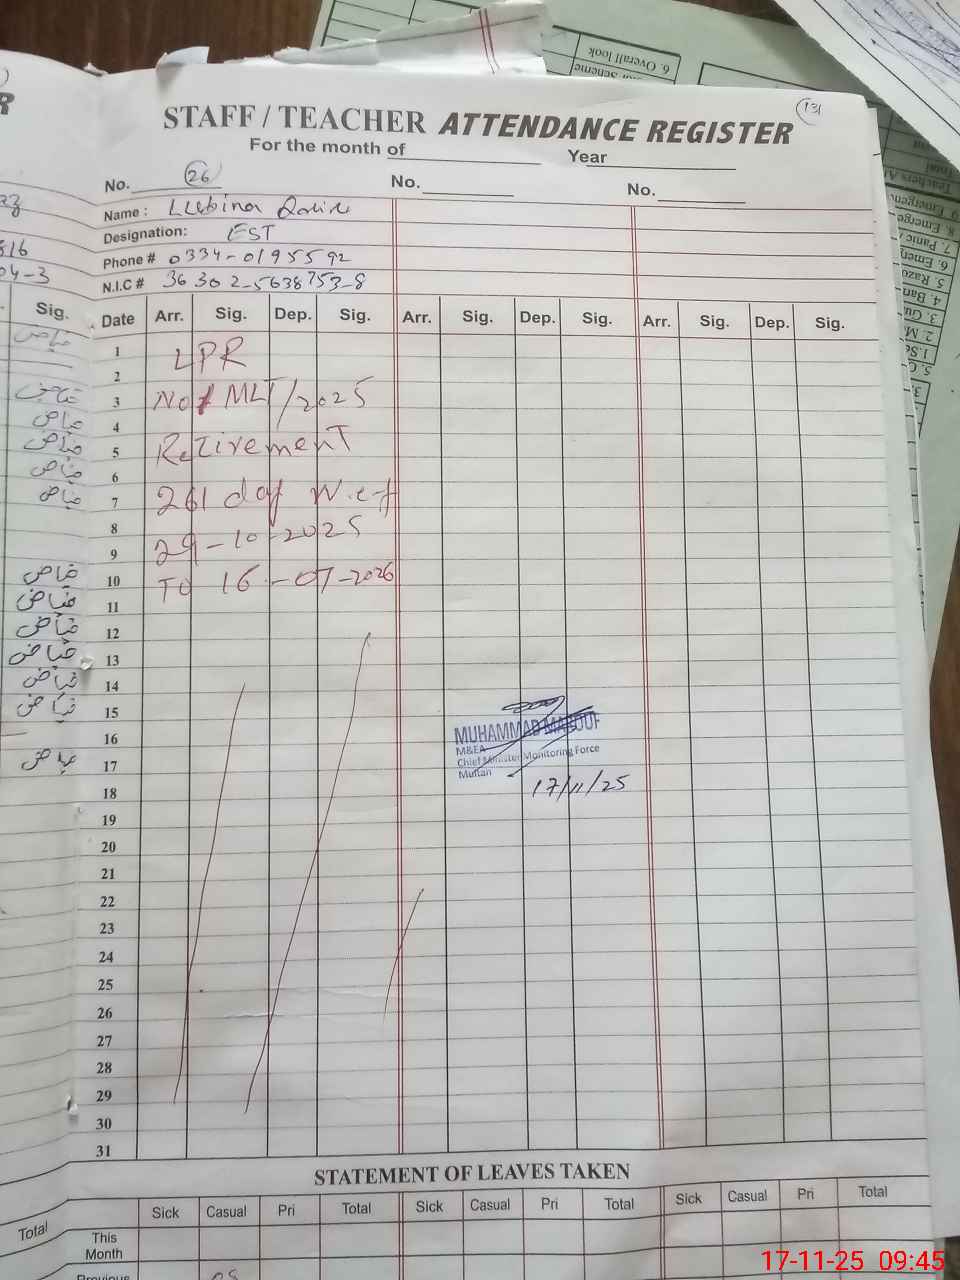 6. Overall look
Scheme
131
STAFF / TEACHER ATTENDANCE REGISTER
For the month of Year
No. 26 No. No.
Name : Lubina
Designation: EST
Phone # 0334-0195592
N.I.C # 36302-5638753-8
Sig. Date Arr. Sig. Dep. Sig. Arr. Sig. Dep. Sig. Arr. Sig. Dep. Sig.
1
LPR
2
3 No / MLT/2025
4
5 Retirement
6
7 261 day w.e.f
8
9 29-10-2025
10 To 16-07-2026
11
12
13
14
15
16
17
18
19
20
21
22
23
24
25
26
27
28
29
30
31
MUHAMMAD MAROUF
M&EA
Chief Minister Monitoring Force
Multan
17/11/25
STATEMENT OF LEAVES TAKEN
Total Sick Casual Pri Total Sick Casual Pri Total Sick Casual Pri Total
This
Month
Previous
17-11-25 09:45